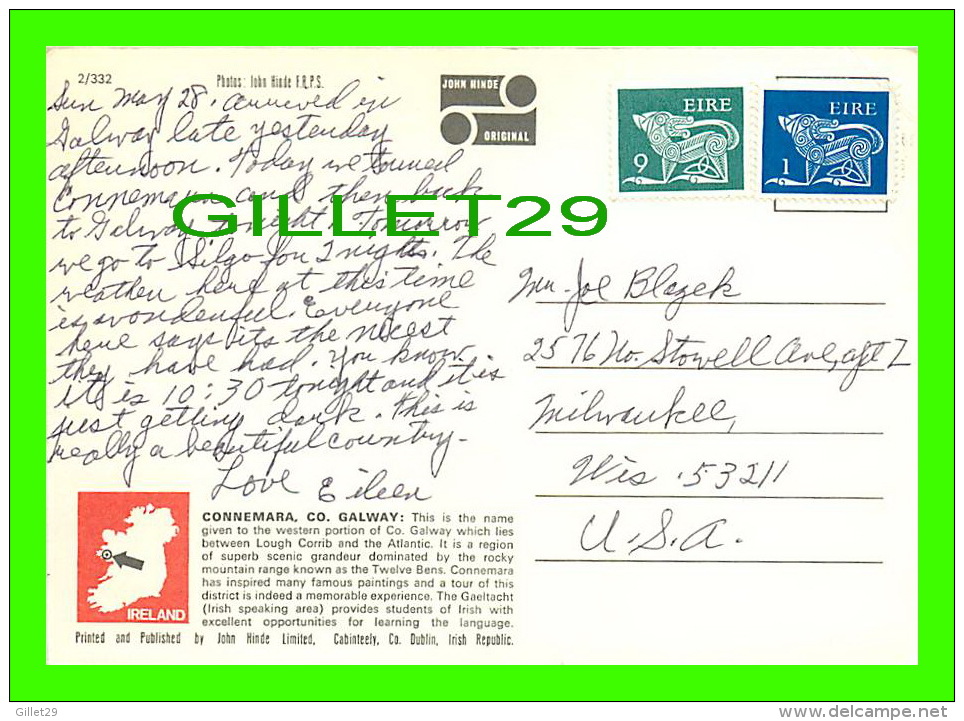 2/332
Photos: John Hinde F.R.P.S.
JOHN HINDE
ORIGINAL
EIRE
9
EIRE
1
Sun May 28. arrived in
Galway late yesterday
afternoon. Today we toured
Connemara and then back
to Galway tonight. Tomorrow
we go to Silgo for 2 nights. The
weather here at this time
is wonderful. Everyone
here says its the nicest
they have had. You know
its is 10:30 tonight and it is
just getting dark. This is
really a beautiful country.
Love Eileen
GILLET29
Mr. Joe Blazek
2576 No. Stowell Ave, apt 2
Milwaukee,
Wis. 53211
U.S.A.
IRELAND
CONNEMARA, CO. GALWAY: This is the name
given to the western portion of Co. Galway which lies
between Lough Corrib and the Atlantic. It is a region
of superb scenic grandeur dominated by the rocky
mountain range known as the Twelve Bens. Connemara
has inspired many famous paintings and a tour of this
district is indeed a memorable experience. The Gaeltacht
(Irish speaking area) provides students of Irish with
excellent opportunities for learning the language.
Printed and Published by John Hinde Limited, Cabinteely, Co. Dublin, Irish Republic.
Gillet29
delcampe.net